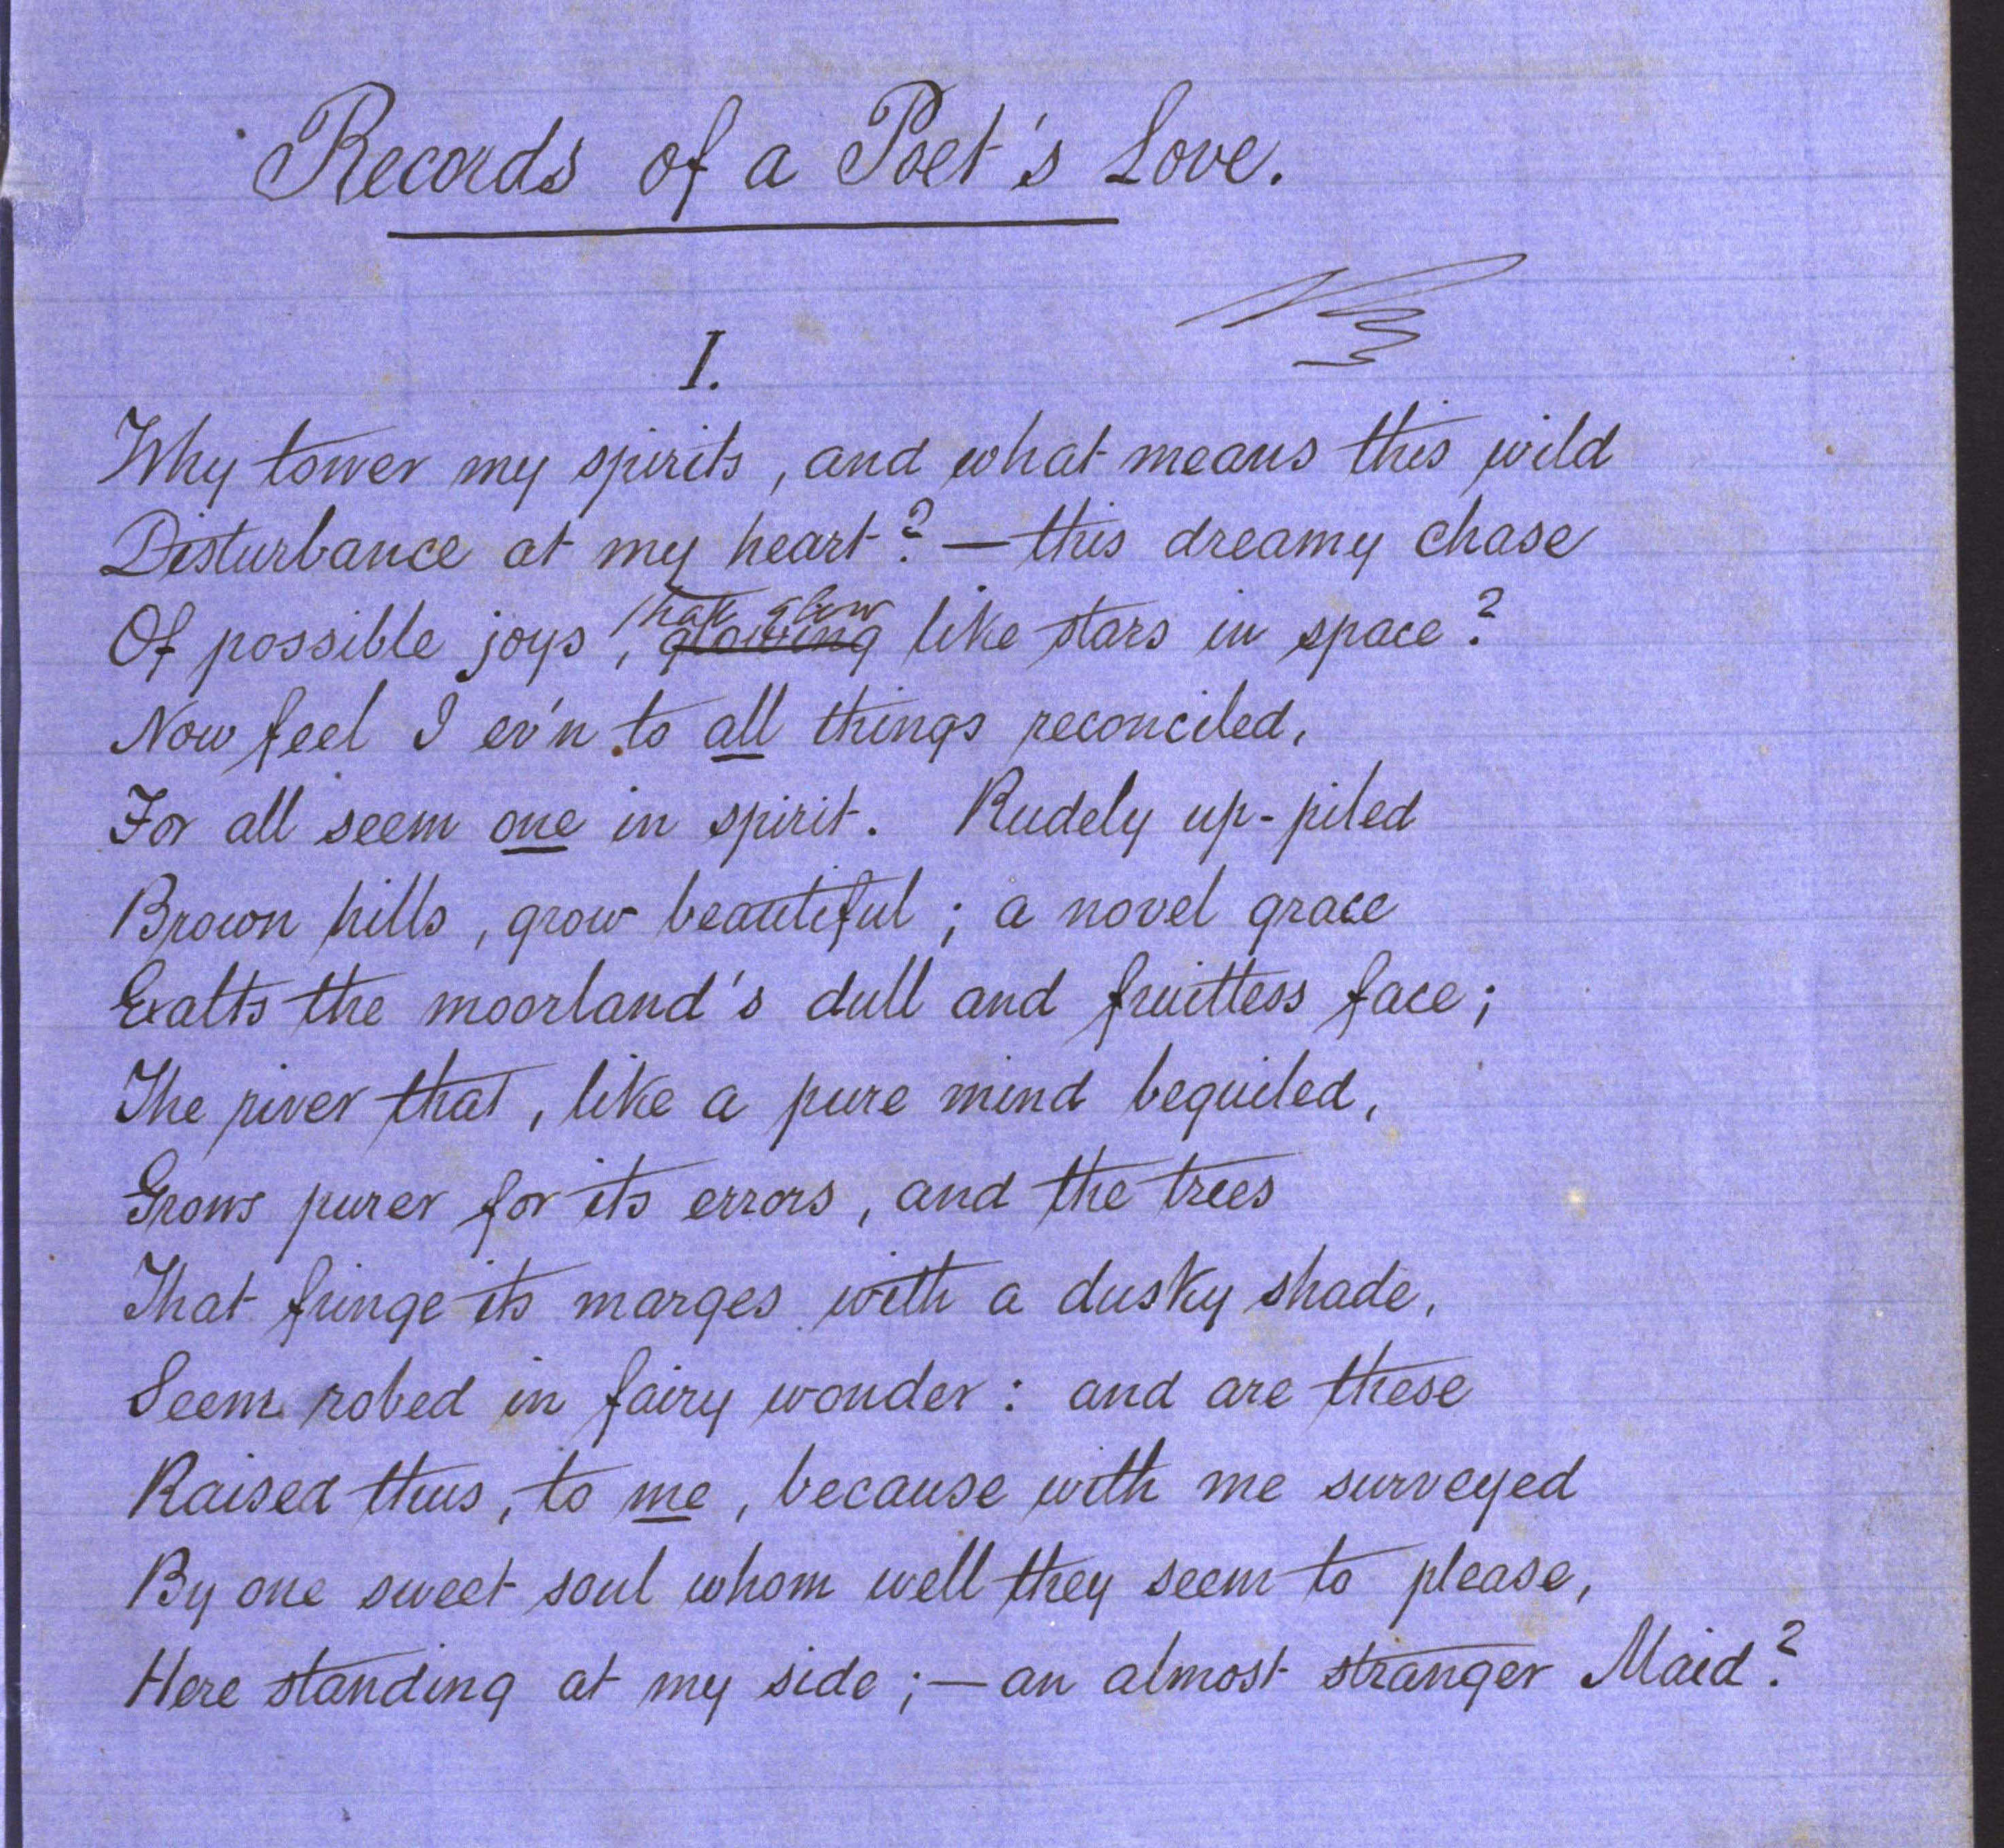 Records of a Poet's Love.
I.
Why tower my spirits, and what means this wild
Disturbance at my heart? — this dreamy chase
that glow
Of possible joys, glowing like stars in space?
Now feel I ev'n to all things reconciled,
For all seem one in spirit. Rudely up-piled
Brown hills, grow beautiful; a novel grace
Exalts the moorland's dull and fruitless face;
The river that, like a pure mind beguiled,
Grows purer for its errors, and the trees
That fringe its marges with a dusky shade,
Seem robed in fairy wonder: and are these
Raised thus, to me, because with me surveyed
By one sweet soul whom well they seem to please,
Here standing at my side; — an almost stranger Maid?